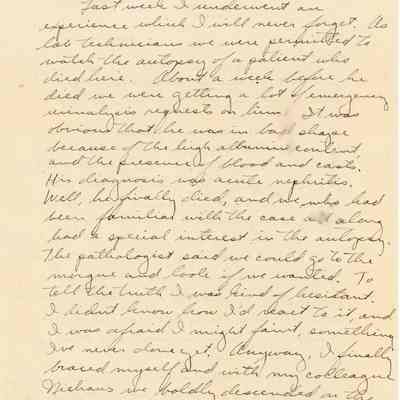 Last week I underwent an
experience which I will never forget. As
lab technicians we were permitted to
watch the autopsy of a patient who
died here. About a week before he
died we were getting a lot of emergency
urinalysis requests on him. It was
obvious that he was in bad shape
because of the high albumin content,
and the presence of blood and casts.
His diagnosis was acute nephritis.
Well, he finally died, and we who had
been familiar with the case all along
had a special interest in the autopsy.
The pathologist said we could go to the
morgue and look if we wanted. To
tell the truth I was kind of hesitant.
I didn't know how I'd react to it and
I was afraid I might faint, something
I've never done yet. Anyway, I finally
braced myself and with my colleague
Niehaus we boldly descended on the